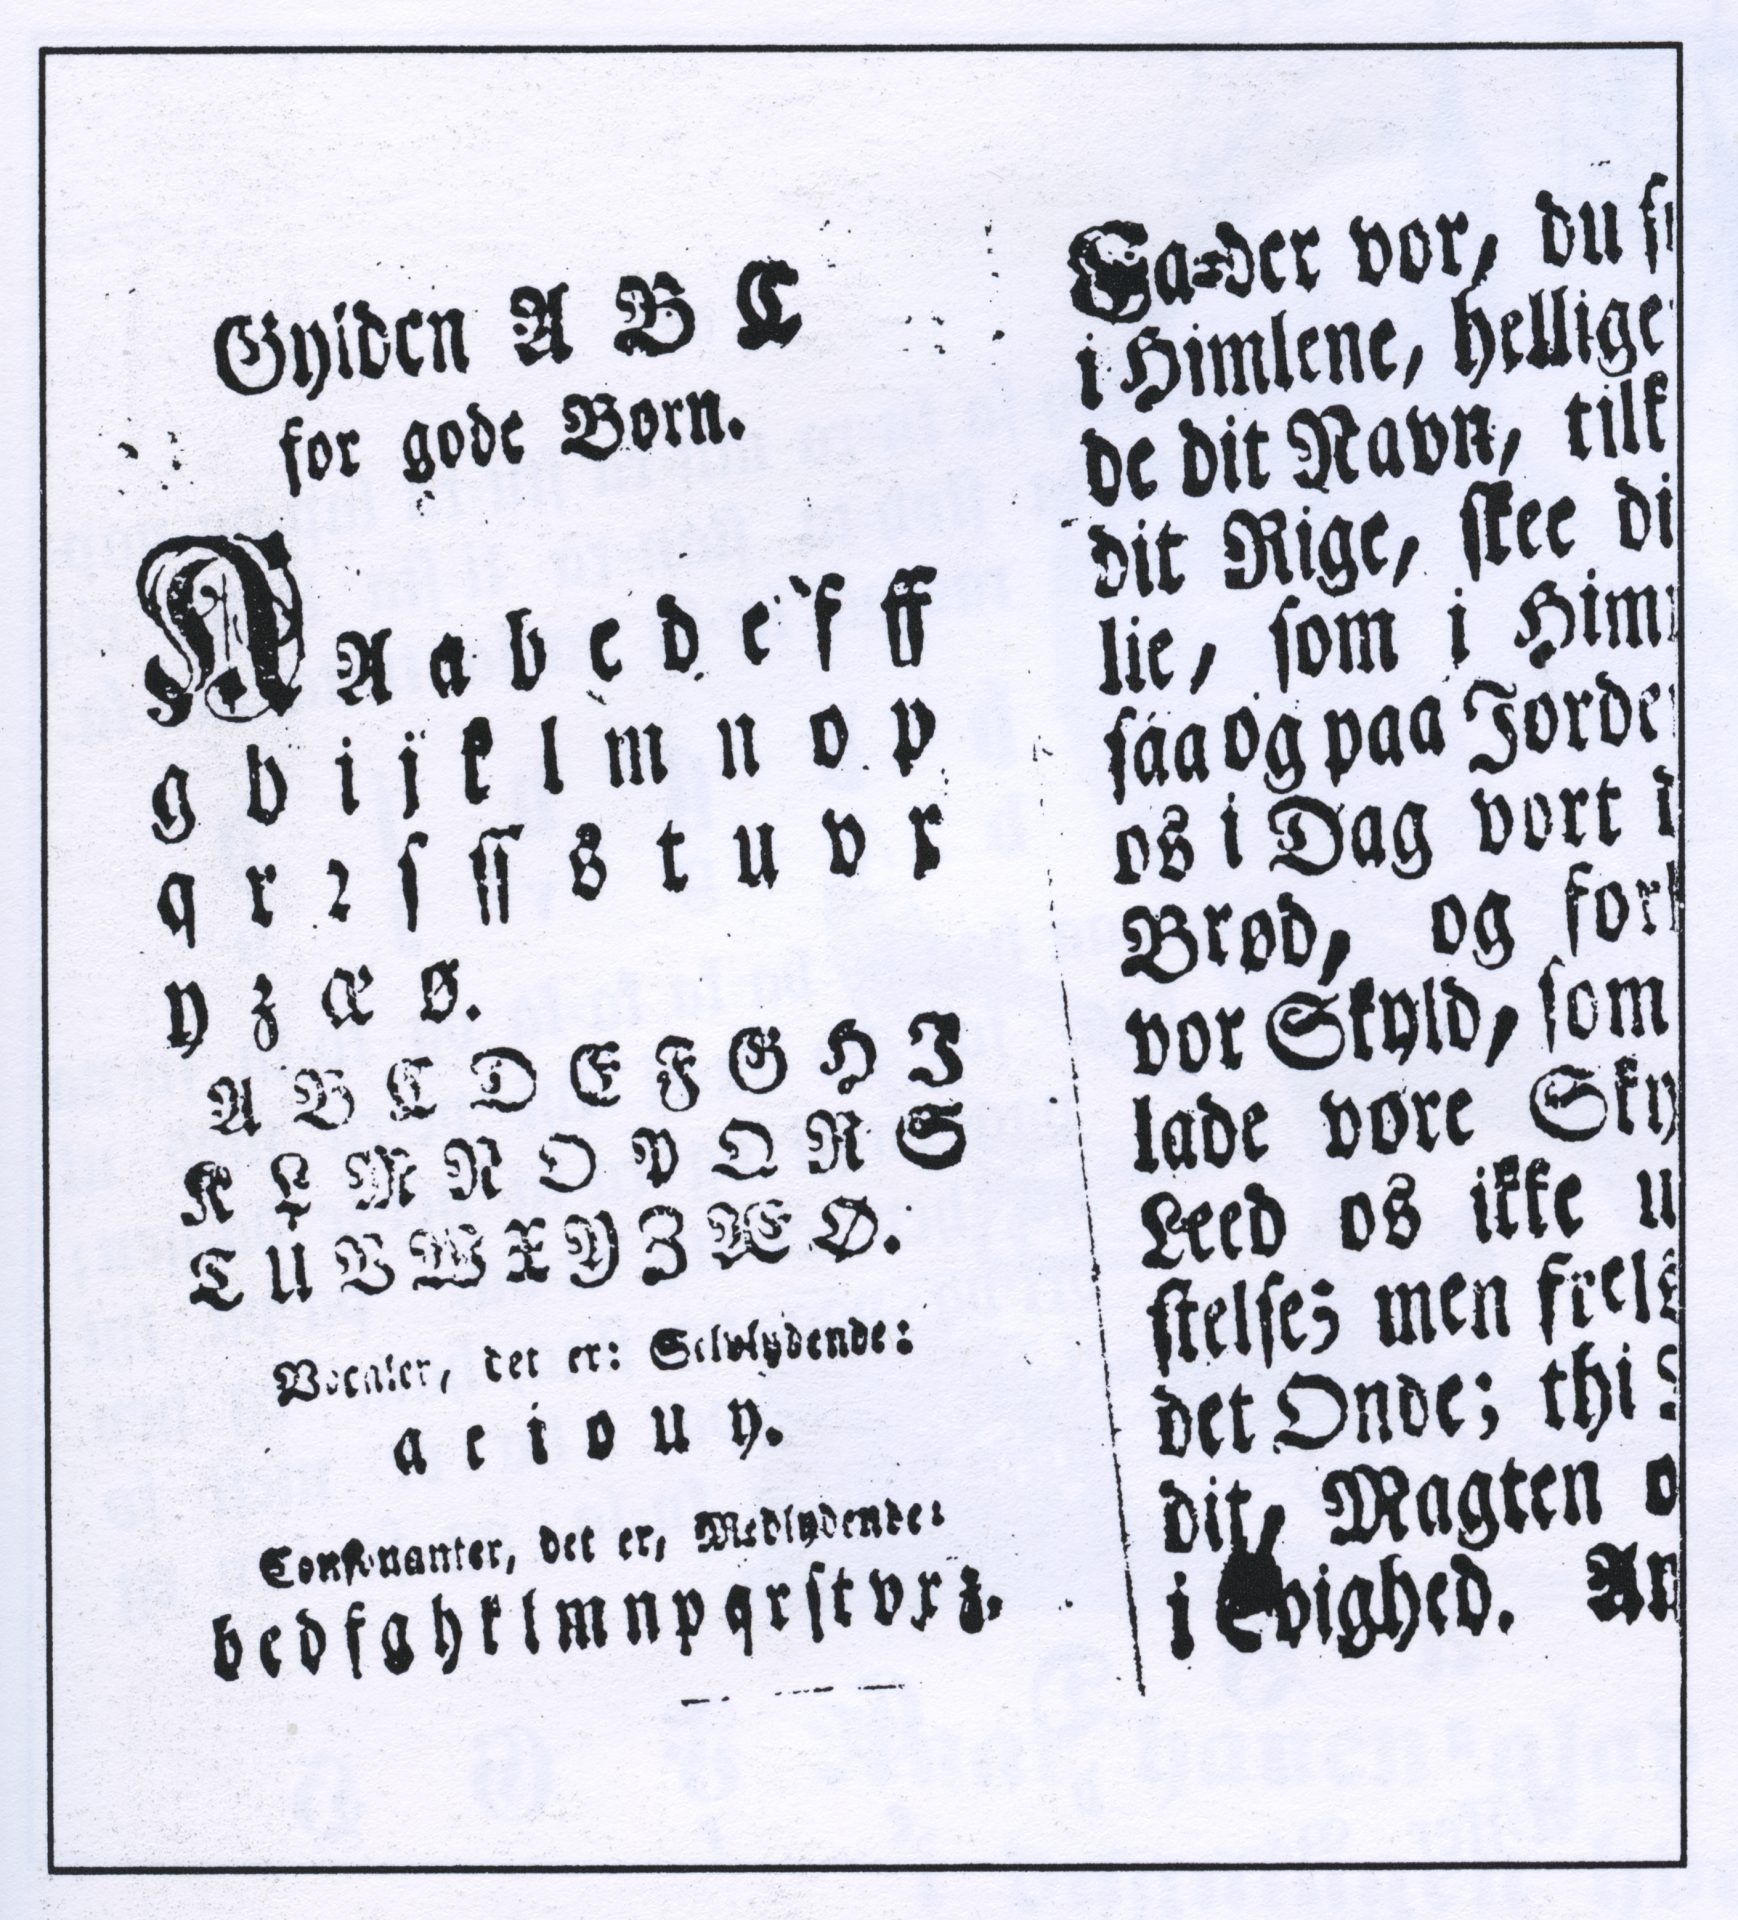 Gylden A B C
for gode Børn.
A A a b c d e f ff
g h i j k l m n o p
q r ꝛ ſ ſſ s t u v x
y z æ ø.
A B C D E F G H I
K L M N O P Q R S
T U V W X Y Z Æ Ø.
Vocaler, det er: Selvlydende:
a e i o u y.
Conſonanter, det er, Medlydende:
b c d f g h k l m n p q r ſ t v x z.
Fa⸗der vor, du
i Himlene, hellige
de dit Navn, tilk
dit Rige, ſkee di
lie, ſom i Him
ſaa og paa Jorde
os i Dag vort d
Brød, og forl
vor Skyld, ſom
lade vore Sky
Leed os ikke u
ſtelſe; men frels
det Onde; thi
dit, Magten o
i Evighed. Am